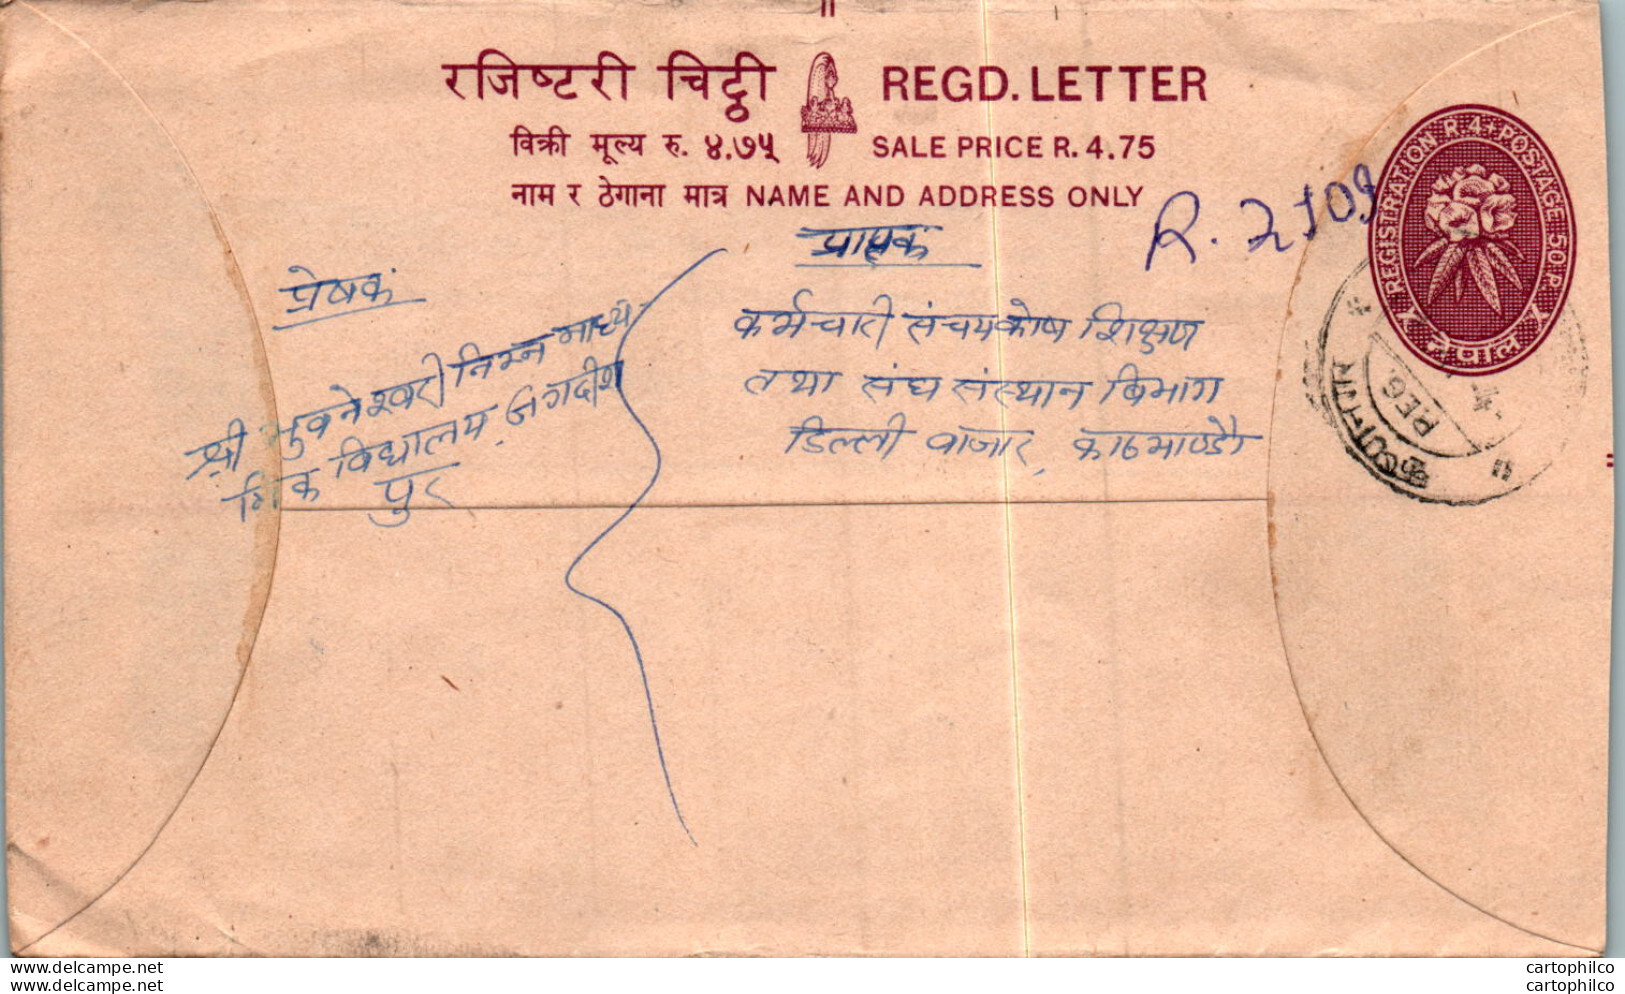 रजिष्टरी चिट्ठी REGD. LETTER
विक्री मूल्य रु. ४.७५ SALE PRICE R. 4.75
नाम र ठेगाना मात्र NAME AND ADDRESS ONLY
R. 2109
REGISTRATION R.4+POSTAGE 50 P.
नेपाल
REG.
प्रेषक
श्री भुवनेश्वरी निम्न माध्य-
मिक विद्यालय जगदीश
पुर
प्रापक
कर्मचारी संचयकोष शिक्षण
तथा संघ संस्थान बिभाग
डिल्ली वजार, काठमाण्डौ
cartophilco
cartophilco
cartophilco
cartophilco